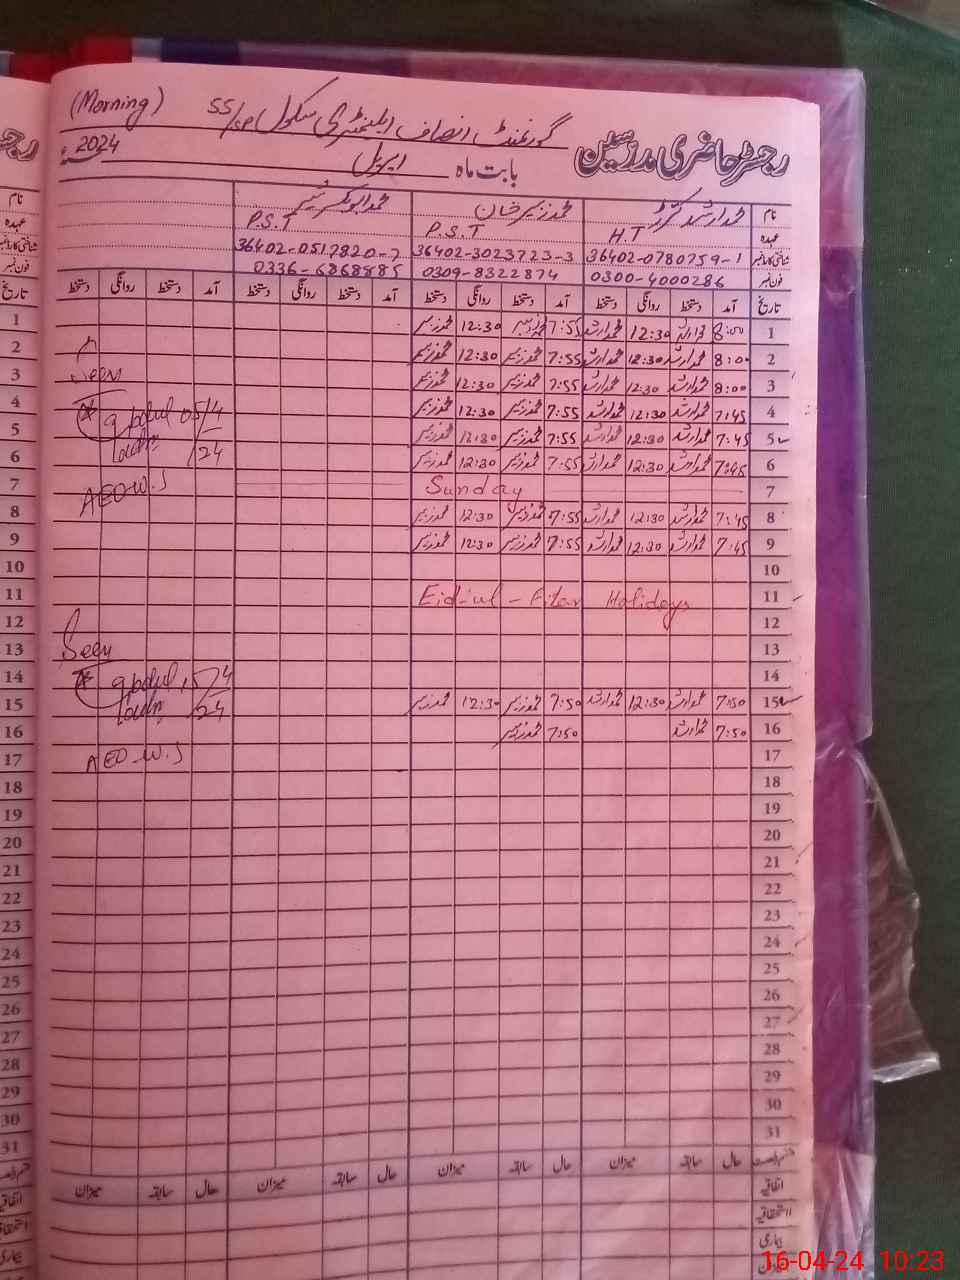 (Morning)
گورنمنٹ انصاف ایلیمنٹری سکول 55/SP
رجسٹر حاضری مدرسین
بابت ماہ اپریل 2024
نام محمد ارشد محمد زبیر خان محمد ابوبکر
عہدہ H.T P.S.T P.S.T
شناختی کارڈ نمبر 36402-0780759-1 36402-3023723-3 36402-0517820-7
فون نمبر 0300-4000286 0309-8322874 0336-6868885
تاریخ آمد دستخط روانگی دستخط آمد دستخط روانگی دستخط آمد دستخط روانگی دستخط
1 8:00 محمد ارشد 12:30 محمد ارشد 7:55 محمد زبیر 12:30 محمد زبیر
2 8:00 محمد ارشد 12:30 محمد ارشد 7:55 محمد زبیر 12:30 محمد زبیر
3 8:00 محمد ارشد 12:30 محمد ارشد 7:55 محمد زبیر 12:30 محمد زبیر
4 7:45 محمد ارشد 12:30 محمد ارشد 7:55 محمد زبیر 12:30 محمد زبیر
5 7:45 محمد ارشد 12:30 محمد ارشد 7:55 محمد زبیر 12:30 محمد زبیر
6 7:45 محمد ارشد 12:30 محمد ارشد 7:55 محمد زبیر 12:30 محمد زبیر
7 Sunday
8 7:45 محمد ارشد 12:30 محمد ارشد 7:55 محمد زبیر 12:30 محمد زبیر
9 7:45 محمد ارشد 12:30 محمد ارشد 7:55 محمد زبیر 12:30 محمد زبیر
10
11 Eid-ul-Fitar Holidays
12
13
14
15 7:50 محمد ارشد 12:30 محمد ارشد 7:50 محمد زبیر 12:30 محمد زبیر
16 7:50 محمد ارشد 7:50 محمد زبیر
17
18
19
20
21
22
23
24
25
26
27
28
29
30
31
Seen
05/4/24
AEO-W.S
Seen
15/4/24
AEO-W.S
حال سابقہ میزان حال سابقہ میزان حال سابقہ میزان
اتفاقیہ
استحقاقیہ
بیماری
16-04-24 10:23